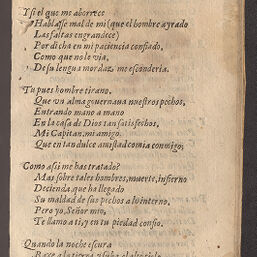 Y si el que me aborrece
Hablasse mal de mi (que el hombre ayrado
Las faltas engrandece)
Por dicha en mi paciencia confiado,
Como que no le via,
De su lengua mordaz me esconderia.
Tu pues hombre tirano.
Que un alma governava nuestros pechos,
Entrando mano a mano
En la casa de Dios tan satisfechos,
Mi Capitan, mi amigo.
Que en tan dulce amistad comia conmigo;
Como assi me has tratado?
Mas sobre tales hombres, muerte, infierno
Decienda, que ha llegado
Su maldad de sus pechos a lo interno,
Pero yo, Señor mio,
Te llamo a ti, y en tu piedad confio.
Quando la noche escura